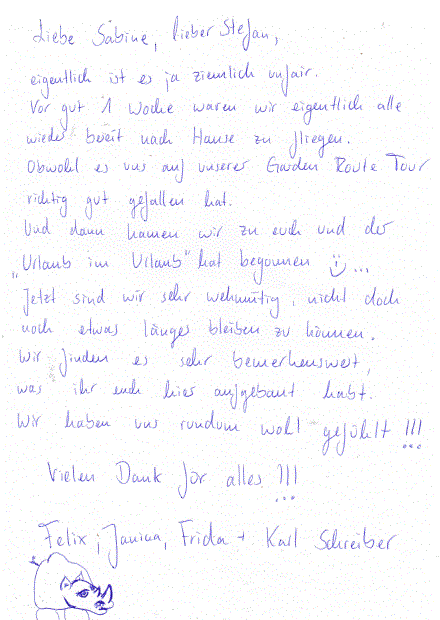 Liebe Sabine, lieber Stefan,
eigentlich ist es ja ziemlich unfair.
Vor gut 1 Woche waren wir eigentlich alle
wieder bereit nach Hause zu fliegen.
Obwohl es uns auf unserer Garden Route Tour
richtig gut gefallen hat.
Und dann kamen wir zu euch und der
„Urlaub im Urlaub" hat begonnen ☺...
Jetzt sind wir sehr wehmütig, nicht doch
noch etwas länges bleiben zu können.
Wir finden es sehr bemerkenswert,
was ihr euch hier aufgebaut habt.
Wir haben uns rundum wohl gefühlt !!!
Vielen Dank für alles !!!
Felix, Janina, Frida + Karl Schreiber